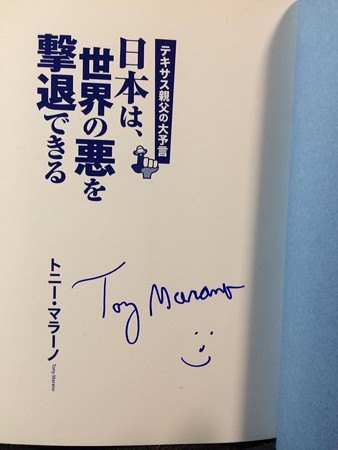 テキサス親父の大予言
日本は、
世界の悪を
撃退できる
トニー・マラーノ
Tony Marano
Tony Marano